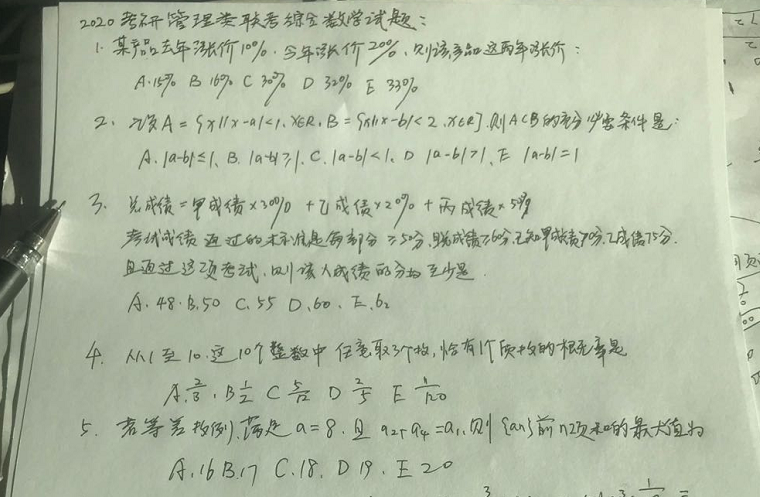 2020考研管理类联考综合数学试题:
1. 某产品去年涨价10%,今年涨价20%,则该产品这两年涨价:
A.15% B 16% C 30% D 32% E 33%
2. 设A={x||x-a|<1,x∈R},B={x||x-b|<2,x∈R},则A⊂B的充分必要条件是:
A.|a-b|≤1, B.|a-b|≥1, C.|a-b|<1, D |a-b|>1, E |a-b|=1
3. 总成绩=甲成绩×30%+乙成绩×20%+丙成绩×50%
考试成绩通过的标准是每部分≥50分,且总成绩≥60分,已知甲成绩70分,乙成绩75分.
且通过这项考试,则该人成绩的分数至少是
A.48.B.50 C.55 D.60. E.62
4. 从1至10.这10个整数中任意取3个数,恰有1个质数的概率是
A.2/3. B 1/2 C 5/12 D 2/5 E 1/120
5. 若等差数列满足a=8.且a2+a4=a1,则{an}前n项和的最大值为
A.16 B.17 C.18. D 19. E 20